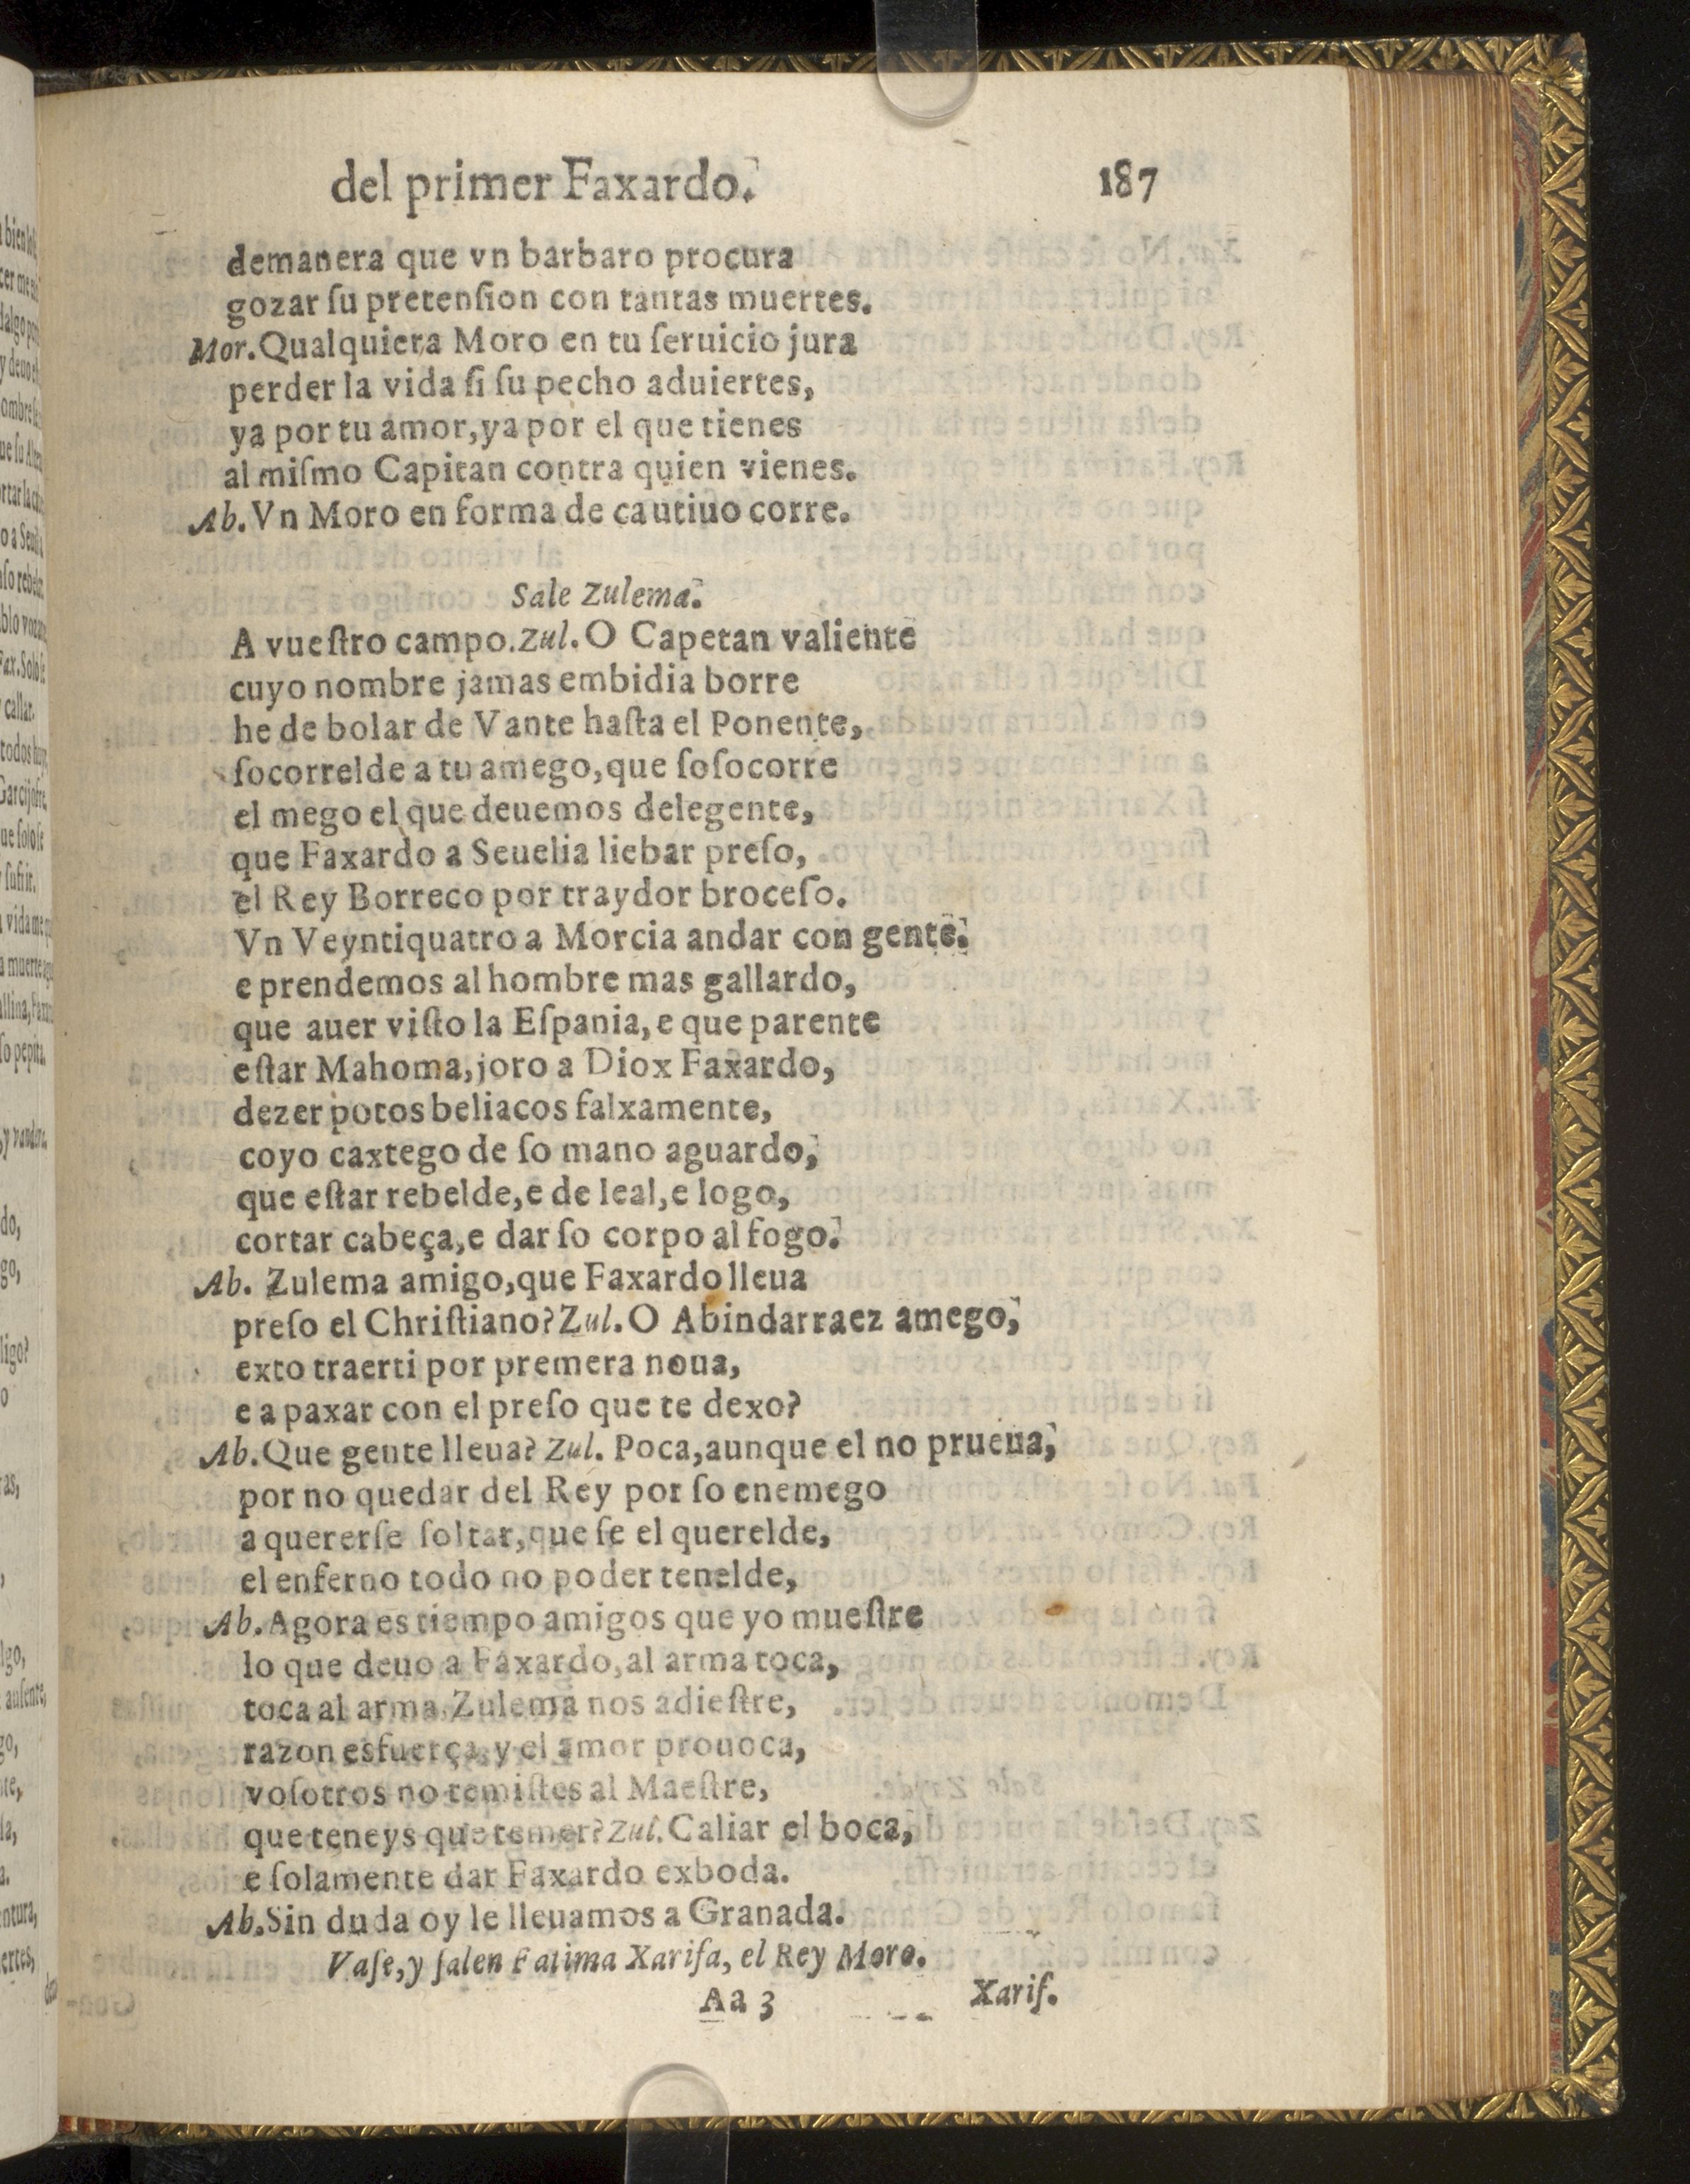 del primer Faxardo. 187
demanera que vn barbaro procura
gozar ſu pretenſion con tantas muertes.
Mor. Qualquiera Moro en tu ſeruicio jura
perder la vida ſi ſu pecho aduiertes,
ya por tu amor, ya por el que tienes
al miſmo Capitan contra quien vienes.
Ab. Vn Moro en forma de cautiuo corre.
Sale Zulema.
A vueſtro campo. Zul. O Capetan valiente
cuyo nombre jamas embidia borre
he de bolar de Vante haſta el Ponente,
ſocorrelde a tu amego, que ſoſocorre
el mego el que deuemos delegente,
que Faxardo a Seuelia liebar preſo,
el Rey Borreco por traydor broceſo.
Vn Veyntiquatro a Morcia andar con gente.
e prendemos al hombre mas gallardo,
que auer viſto la Eſpania, e que parente
eſtar Mahoma, joro a Diox Faxardo,
dezer potos beliacos falxamente,
coyo caxtego de ſo mano aguardo,
que eſtar rebelde, e de leal, e logo,
cortar cabeça, e dar ſo corpo al fogo.
Ab. Zulema amigo, que Faxardo lleua
preſo el Chriſtiano? Zul. O Abindarraez amego,
exto traerti por premera noua,
e a paxar con el preſo que te dexo?
Ab. Que gente lleua? Zul. Poca, aunque el no prueua,
por no quedar del Rey por ſo enemego
a quererſe ſoltar, que ſe el querelde,
el enferno todo no poder tenelde,
Ab. Agora es tiempo amigos que yo mueſtre
lo que deuo a Faxardo, al arma toca,
toca al arma Zulema nos adieſtre,
razon esfuerça, y el amor prouoca,
voſotros no temiſtes al Maeſtre,
que teneys que temer? Zul. Caliar el boca,
e ſolamente dar Faxardo exboda.
Ab. Sin duda oy le lleuamos a Granada.
Vaſe, y ſalen Fatima Xariſa, el Rey Moro.
Aa 3 Xariſ.